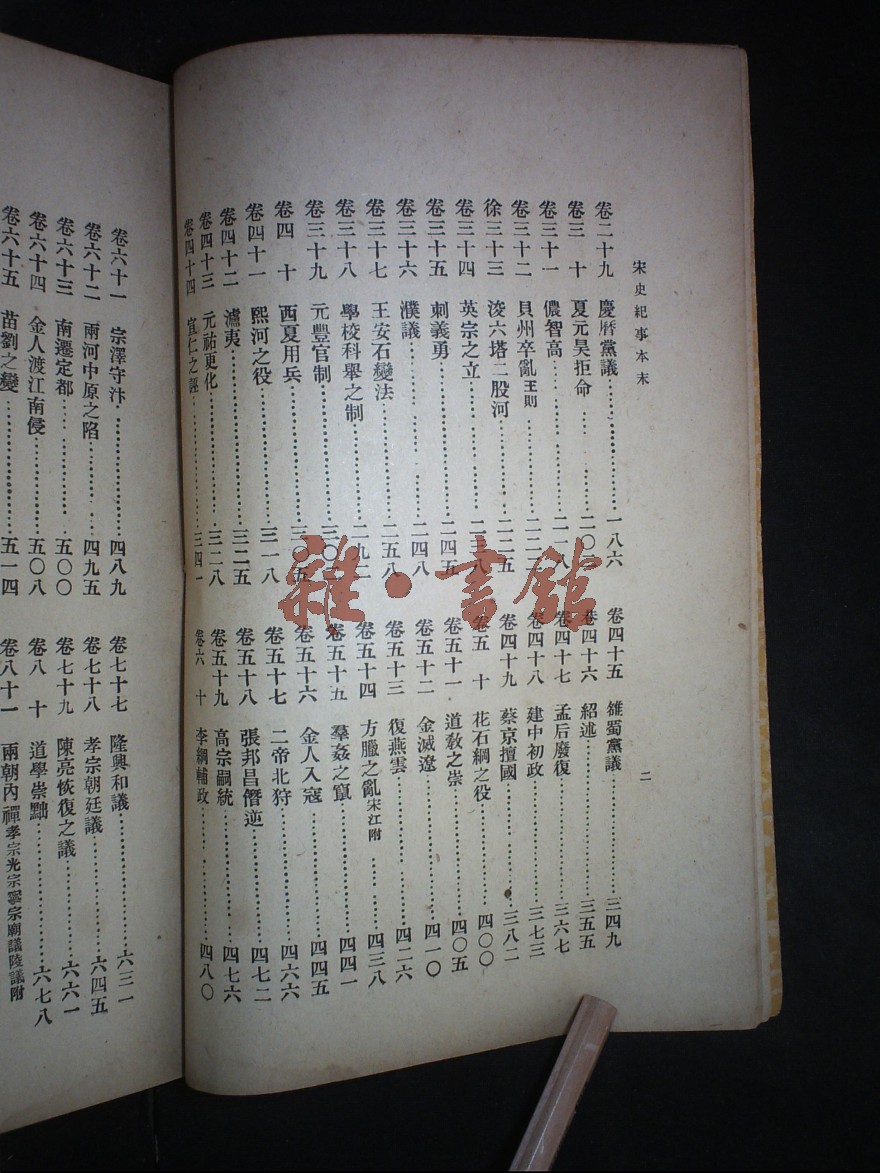 宋史紀事本末
二
卷二十九 慶曆黨議……一八六
卷三十 夏元昊拒命……二〇
卷三十一 儂智高……二一八
卷三十二 貝州卒亂王則……二二二
徐三十三 浚六塔二股河……二二五
卷三十四 英宗之立……二三八
卷三十五 刺義勇……二四五
卷三十六 濮議……二四八
卷三十七 王安石變法……二五八
卷三十八 學校科舉之制……二九二
卷三十九 元豐官制……三〇
卷四十 西夏用兵……三〇五
卷四十一 熙河之役……三一八
卷四十二 瀘夷……三二五
卷四十三 元祐更化……三二八
卷四十四 宣仁之誣……三四一
卷四十五 雒蜀黨議……三四九
卷四十六 紹述……三五五
卷四十七 孟后廢復……三六七
卷四十八 建中初政……三七三
卷四十九 蔡京擅國……三八二
卷五十 花石綱之役……四〇〇
卷五十一 道教之崇……四〇五
卷五十二 金滅遼……四一〇
卷五十三 復燕雲……四二六
卷五十四 方臘之亂宋江附……四三八
卷五十五 羣姦之竄……四四一
卷五十六 金人入寇……四四五
卷五十七 二帝北狩……四六六
卷五十八 張邦昌僭逆……四七二
卷五十九 高宗嗣統……四七六
卷六十 李綱輔政……四八〇
卷六十一 宗澤守汴……四八九
卷六十二 兩河中原之陷……四九五
卷六十三 南遷定都……五〇〇
卷六十四 金人渡江南侵……五〇八
卷六十五 苗劉之變……五一四
卷七十七 隆興和議……六三一
卷七十八 孝宗朝廷議……六四五
卷七十九 陳亮恢復之議……六六一
卷八十 道學崇黜……六七八
卷八十一 兩朝內禪孝宗光宗寧宗廟議陵議附
雜·書館